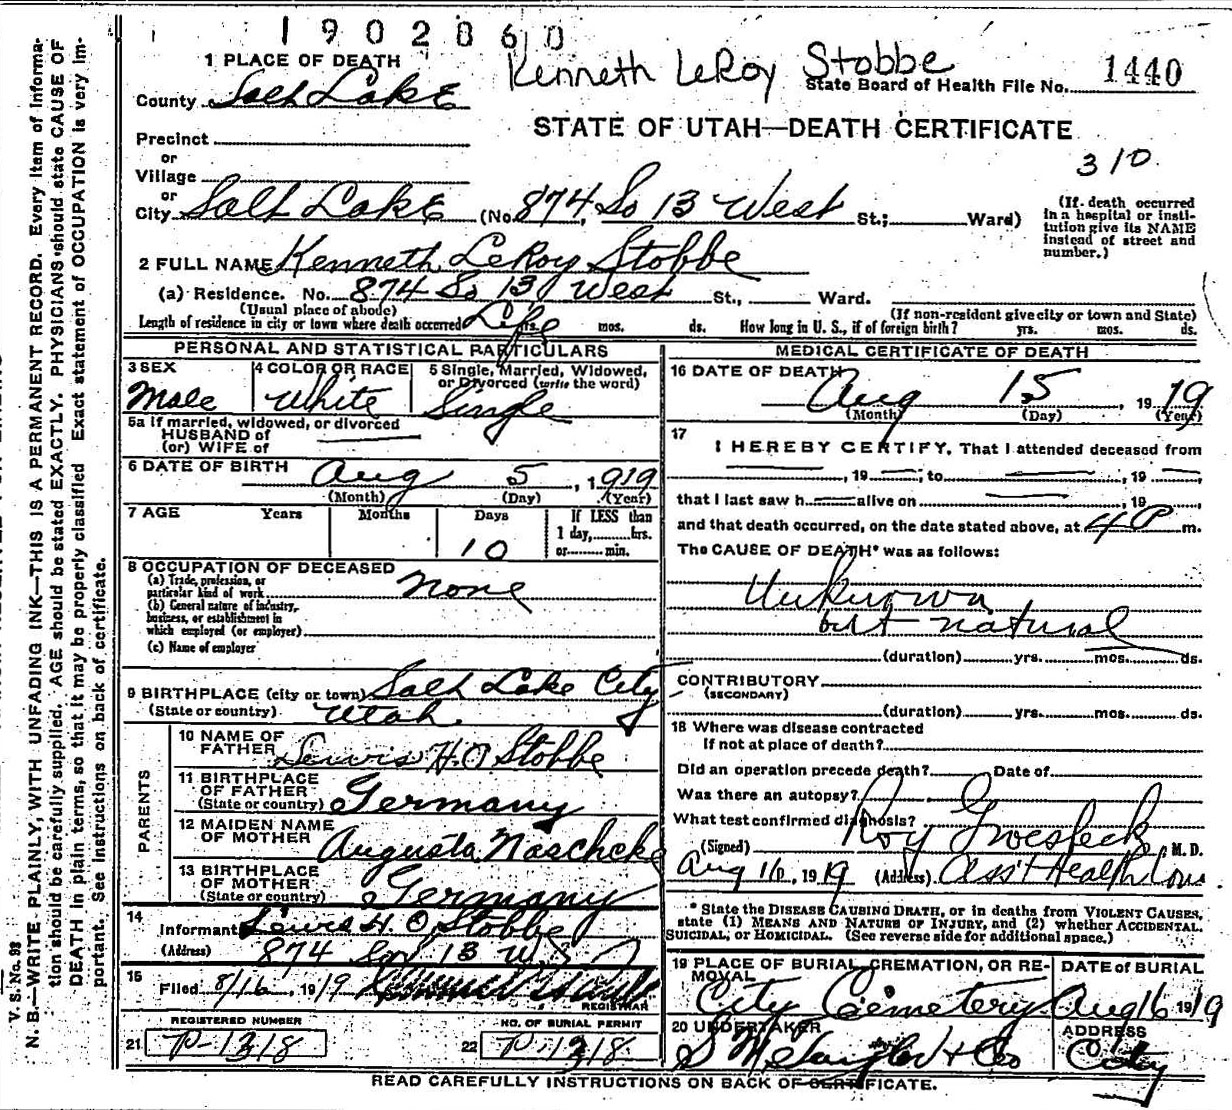 1902860
Kenneth LeRoy Stobbe
1 PLACE OF DEATH
State Board of Health File No. 1440
County Salt Lake
STATE OF UTAH—DEATH CERTIFICATE
Precinct
310
or
Village
or
City Salt Lake (No. 874 So 13 West St.; Ward)
(If death occurred in a hospital or insti-
tution give its NAME
instead of street and
number.)
2 FULL NAME Kenneth LeRoy Stobbe
(a) Residence. No. 874 So 13 West St., Ward.
(Usual place of abode) (If non-resident give city or town and State)
Length of residence in city or town where death occurred Life yrs. mos. ds. How long in U. S., if of foreign birth? yrs. mos. ds.
PERSONAL AND STATISTICAL PARTICULARS
3 SEX
Male
4 COLOR OR RACE
White
5 Single, Married, Widowed,
or Divorced (write the word)
Single
5a If married, widowed, or divorced
HUSBAND of
(or) WIFE of
6 DATE OF BIRTH Aug 5, 1919
(Month) (Day) (Year)
7 AGE Years Months Days If LESS than
1 day, hrs.
10 or min.
8 OCCUPATION OF DECEASED
(a) Trade, profession, or
particular kind of work none
(b) General nature of industry,
business, or establishment in
which employed (or employer)
(c) Name of employer
9 BIRTHPLACE (city or town) Salt Lake City
(State or country) Utah
PARENTS
10 NAME OF
FATHER Lewis H.O Stobbe
11 BIRTHPLACE
OF FATHER
(State or country) Germany
12 MAIDEN NAME
OF MOTHER Augusta Naschcke
13 BIRTHPLACE
OF MOTHER
(State or country) Germany
14
Informant Lewis H.O. Stobbe
(Address) 874 So 13 W.
15
Filed 8/16, 1919
REGISTRAR
REGISTERED NUMBER
21 P-1318
NO. OF BURIAL PERMIT
22 P-1318
MEDICAL CERTIFICATE OF DEATH
16 DATE OF DEATH
Aug 15, 1919
(Month) (Day) (Year)
17
I HEREBY CERTIFY, That I attended deceased from
, 19 ; to , 19
that I last saw h alive on , 19
and that death occurred, on the date stated above, at 4 P m.
The CAUSE OF DEATH* was as follows:
Unknown
but natural
(duration) yrs. mos. ds.
CONTRIBUTORY
(SECONDARY)
(duration) yrs. mos. ds.
18 Where was disease contracted
If not at place of death?
Did an operation precede death? Date of
Was there an autopsy?
What test confirmed diagnosis?
(Signed) Roy Groesbeck, M. D.
Aug 16, 1919 (Address) Ass't Health Com.
* State the DISEASE CAUSING DEATH, or in deaths from VIOLENT CAUSES,
state (1) MEANS AND NATURE OF INJURY, and (2) whether ACCIDENTAL,
SUICIDAL, or HOMICIDAL. (See reverse side for additional space.)
19 PLACE OF BURIAL, CREMATION, OR RE-
MOVAL
City Cemetery
DATE OF BURIAL
Aug 16 1919
20 UNDERTAKER
S M Taylor & Co
ADDRESS
City
READ CAREFULLY INSTRUCTIONS ON BACK OF CERTIFICATE.
V. S. No. 93
N. B.—WRITE PLAINLY, WITH UNFADING INK—THIS IS A PERMANENT RECORD. Every item of informa-
tion should be carefully supplied. AGE should be stated EXACTLY. PHYSICIANS should state CAUSE OF
DEATH in plain terms, so that it may be properly classified. Exact statement of OCCUPATION is very im-
portant. See Instructions on back of certificate.